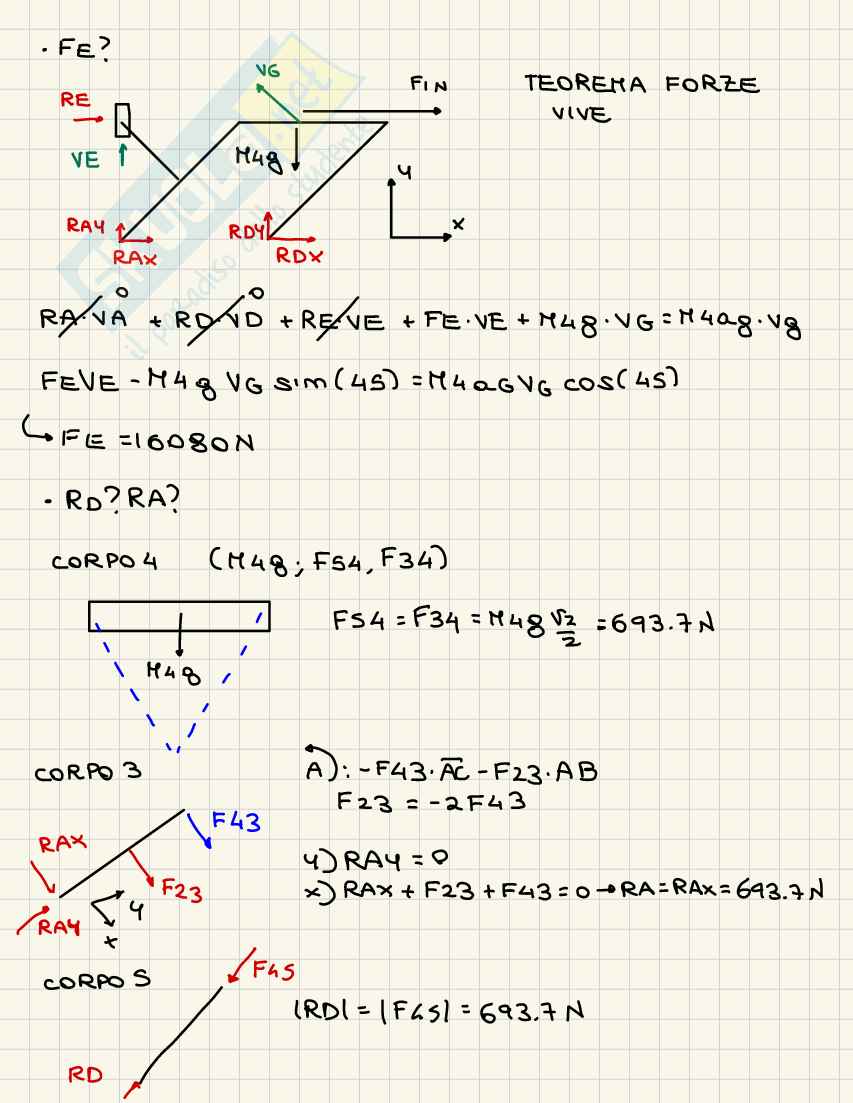 · FE?
VG
FIN
TEOREMA FORZE
VIVE
RE
VE
M4g
y
RAY
RAX
RDY
RDX
x
RA·VA 0 + RD·VD 0 + RE·VE + FE·VE + M4g·VG = M4ag·Vg
FEVE - M4g VG sin(45) = M4aGVG cos(45)
FE = 16080N
· RD? RA?
CORPO 4 (M4g; F54, F34)
F54 = F34 = M4g √2/2 = 693.7 N
M4g
CORPO 3
A): -F43·AC - F23·AB
F23 = -2F43
F43
RAX
y) RAY = 0
F23
x) RAX + F23 + F43 = 0 → RA = RAX = 693.7 N
y
RAY
x
CORPO 5
F45
|RD| = |F45| = 693.7 N
RD
skuola.net
il paradiso dello studente